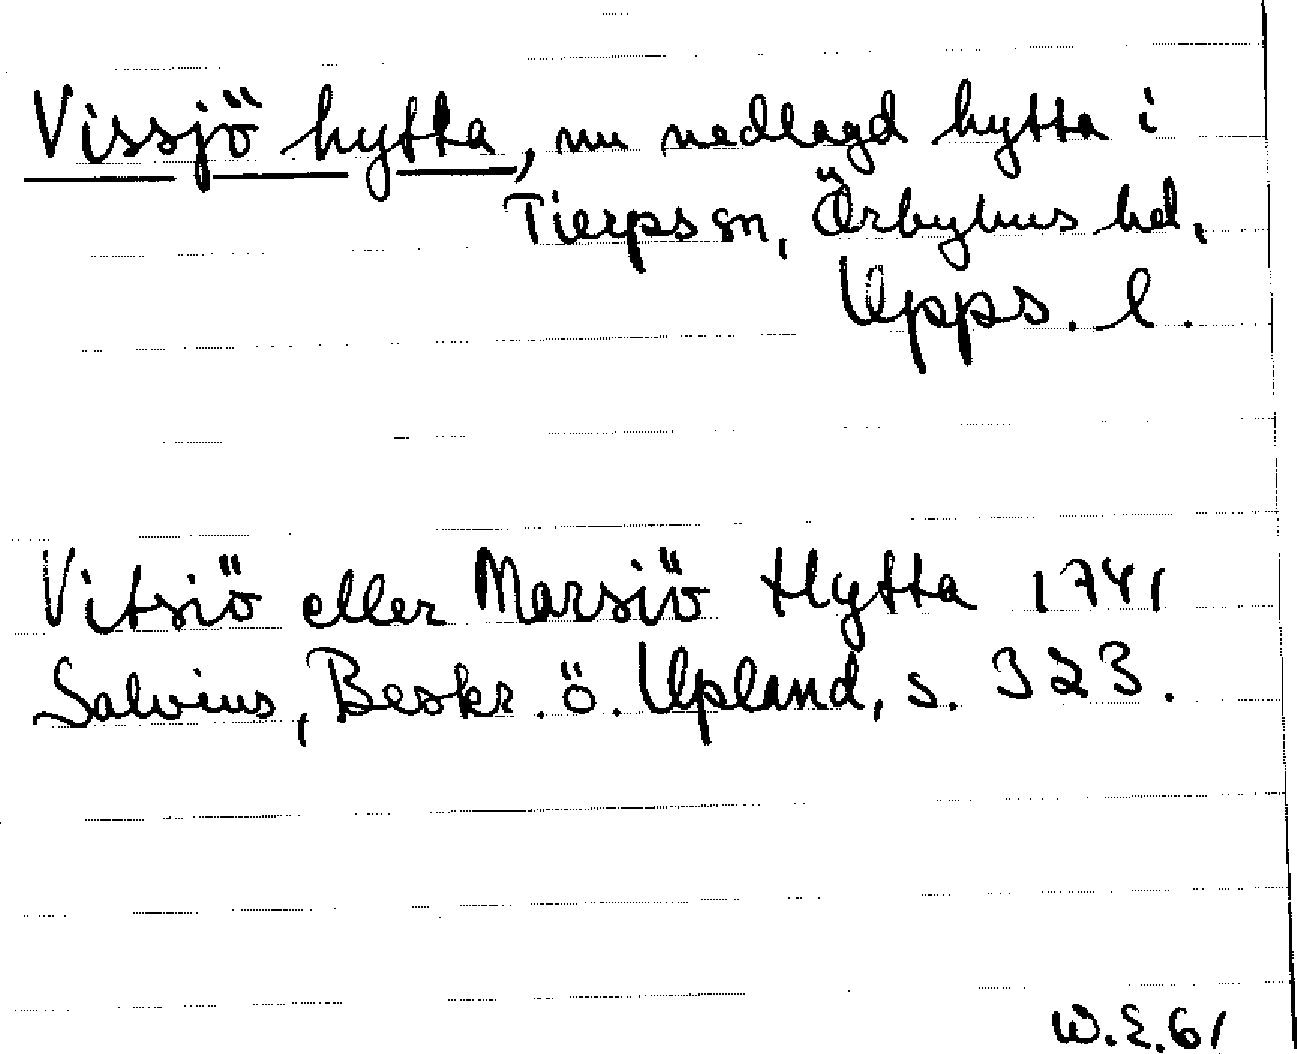 Vissjö hytta, nu nedlagd hytta i
Tierps sn, Örbyhus hd,
Upps. l.
Vitsiö eller Marsiö Hytta 1741
Salvius, Beskr. ö. Upland, s. 323.
W.E.61